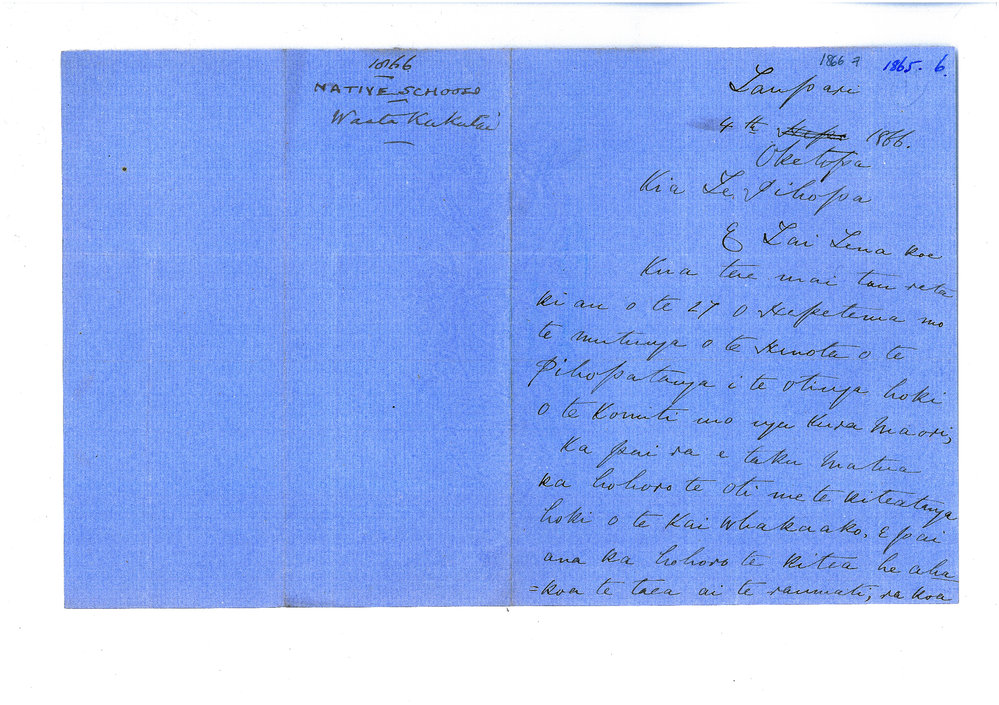 1866
NATIVE SCHOOLS
Waata Kukutai
1866 7
1865. 6.
Taupari
4th Hepe 1866.
Oketopa
Kia Te Pihopa
E Tai Tena koe
Kua tae mai tau reta
ki au o te 27 o Hepetema mo
te mutunga o te Hinota o te
Pihopatanga i te otinga hoki
o te Komiti mo nga Kura Maori,
Ka pai ra e taku Matua
ka hohoro te oti me te kiteatanga
hoki o te Kai whakaako. E pai
ana ka hohoro te kitea he aha
=koa te taea ai te raumati, ra koa